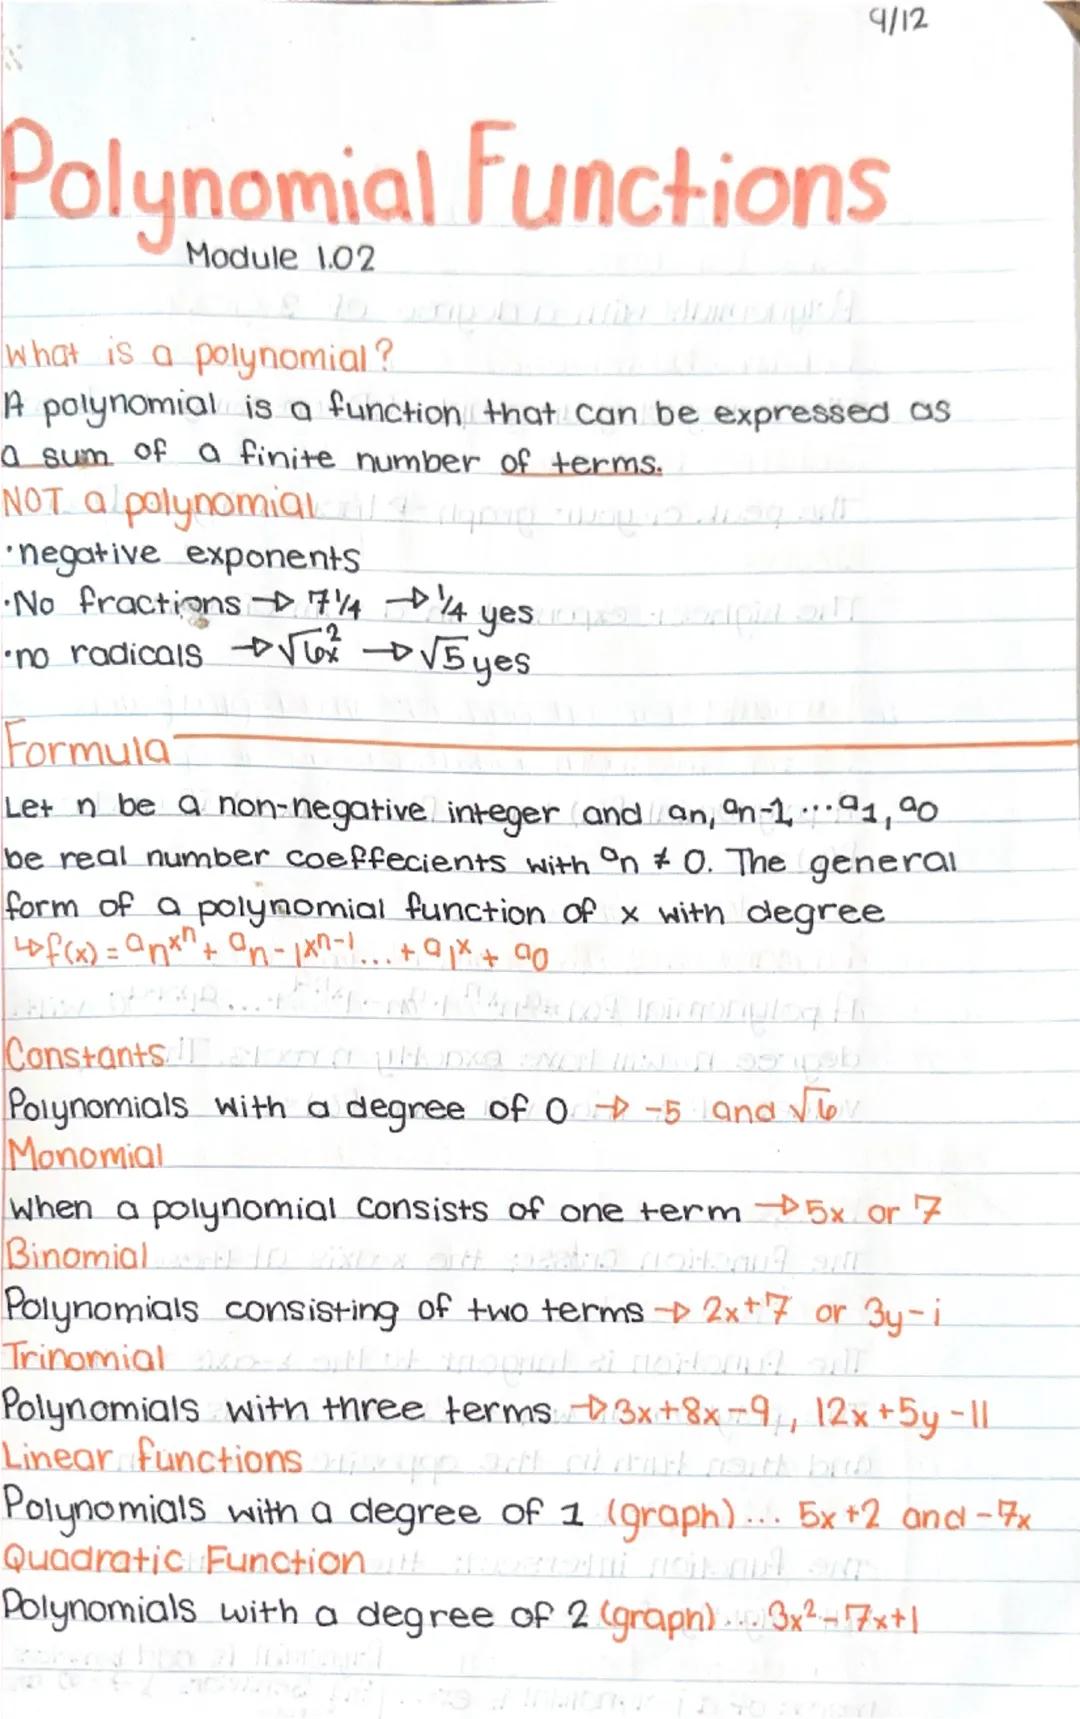 9/12
Polynomial Functions
Module 1.02
What is a polynomial?
A polynomial is a function that can be expressed as
a sum of a finite number of terms.
NOT a polynomial
·negative exponents
·No fractions → 7¼ → ¼ yes
·no radicals → √6x² → √5 yes
Formula
Let n be a non-negative integer and an, an-1, ...a1, a0
be real number coeffecients with an ≠ 0. The general
form of a polynomial function of x with degree
↳f(x) = anxⁿ + an-1xⁿ⁻¹... + a1x + a0
Constants
Polynomials with a degree of 0 → -5 and √6
Monomial
When a polynomial consists of one term → 5x or 7
Binomial
Polynomials consisting of two terms → 2x+7 or 3y-i
Trinomial
Polynomials with three terms → 3x+8x-9, 12x+5y-11
Linear functions
Polynomials with a degree of 1 (graph)... 5x+2 and -7x
Quadratic Function
Polynomials with a degree of 2 (graph)... 3x²-7x+1